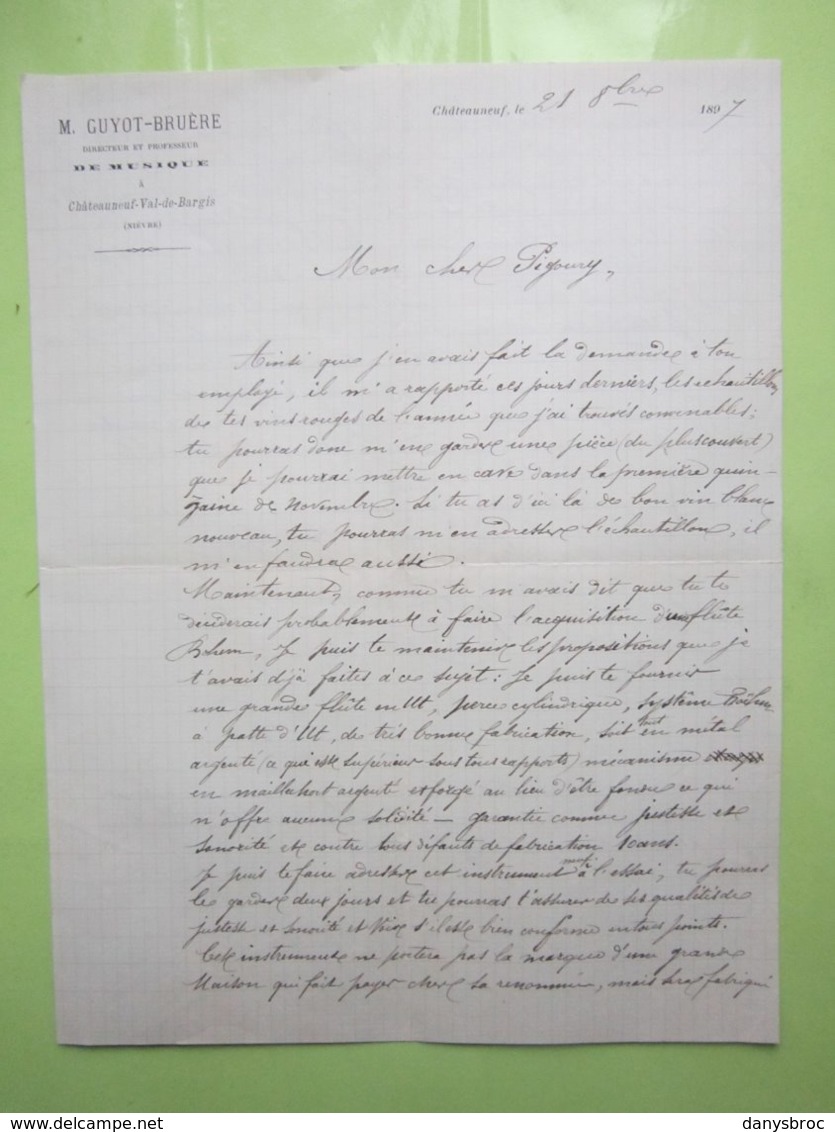 M. GUYOT-BRUÈRE
DIRECTEUR ET PROFESSEUR
DE MUSIQUE
À
Châteauneuf-Val-de-Bargis
(NIÈVRE)
Châteauneuf, le 21 8bre 1897
Mon cher Pigoury,
Ainsi que j'en avais fait la demande à ton
employé, il m'a rapporté ces jours derniers, les échantillons
de tes vins rouges de l'année que j'ai trouvés convenables;
tu pourras donc m'en garder une pièce (du plus couvert)
que je pourrai mettre en cave dans la première quin-
zaine de Novembre. Si tu as d'ici là de bon vin blanc
nouveau, tu pourras m'en adresser l'échantillon, il
m'en faudra aussi.
Maintenant, comme tu m'avais dit que tu te
déciderais probablement à faire l'acquisition d'une flûte
Bohem, Je puis te maintenir les propositions que je
t'avais déjà faites à ce sujet: Je puis te fournir
une grande flûte en Ut, perce cylindrique, système Boëhm
à patte d'Ut, de très bonne fabrication, soit tout en métal
argenté (ce qui est supérieur sous tous rapports) mécanisme
en maillechort argenté et forgé au lieu d'être fondu ce qui
n'offre aucune solidité — garantie comme justesse et
sonorité et contre tous défauts de fabrication 10 ans.
Je puis te faire adresser cet instrument neuf à l'essai, tu pourras
le garder deux jours et tu pourras t'assurer de ses qualités de
justesse et sonorité et voir s'il est bien conforme en tous points.
Cet instrument ne portera pas la marque d'une grande
Maison qui fait payer cher sa renommée, mais sera fabriqué
www.delcampe.net
danysbroc